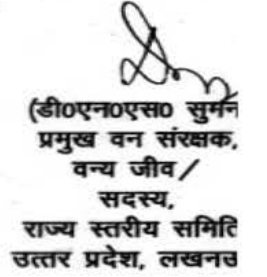 (डी०एन०एस० सुमन
प्रमुख वन संरक्षक,
वन्य जीव/
सदस्य,
राज्य स्तरीय समिति
उत्तर प्रदेश, लखनउ